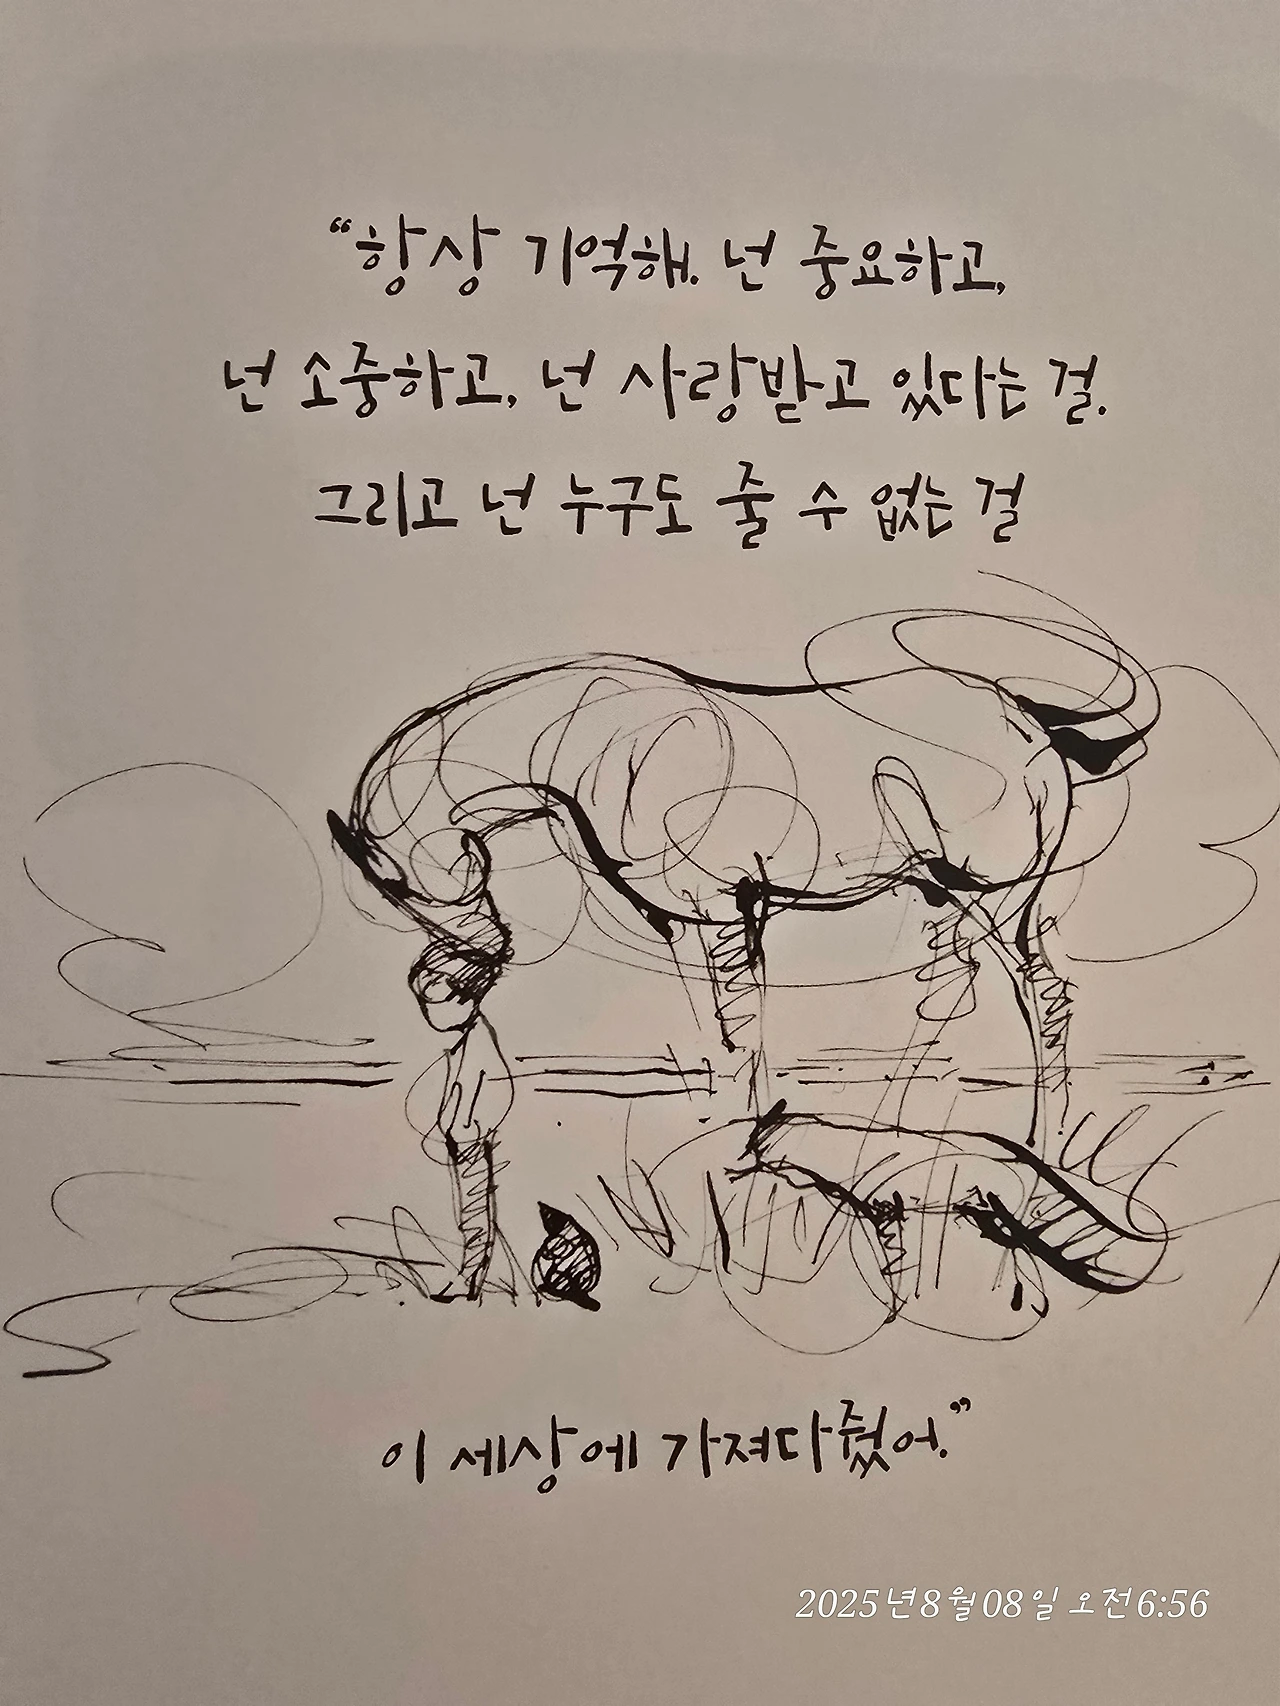 “항상 기억해. 넌 중요하고,
넌 소중하고, 넌 사랑받고 있다는 걸.
그리고 넌 누구도 줄 수 없는 걸
이 세상에 가져다줬어.”
2025년8월08일 오전6:56